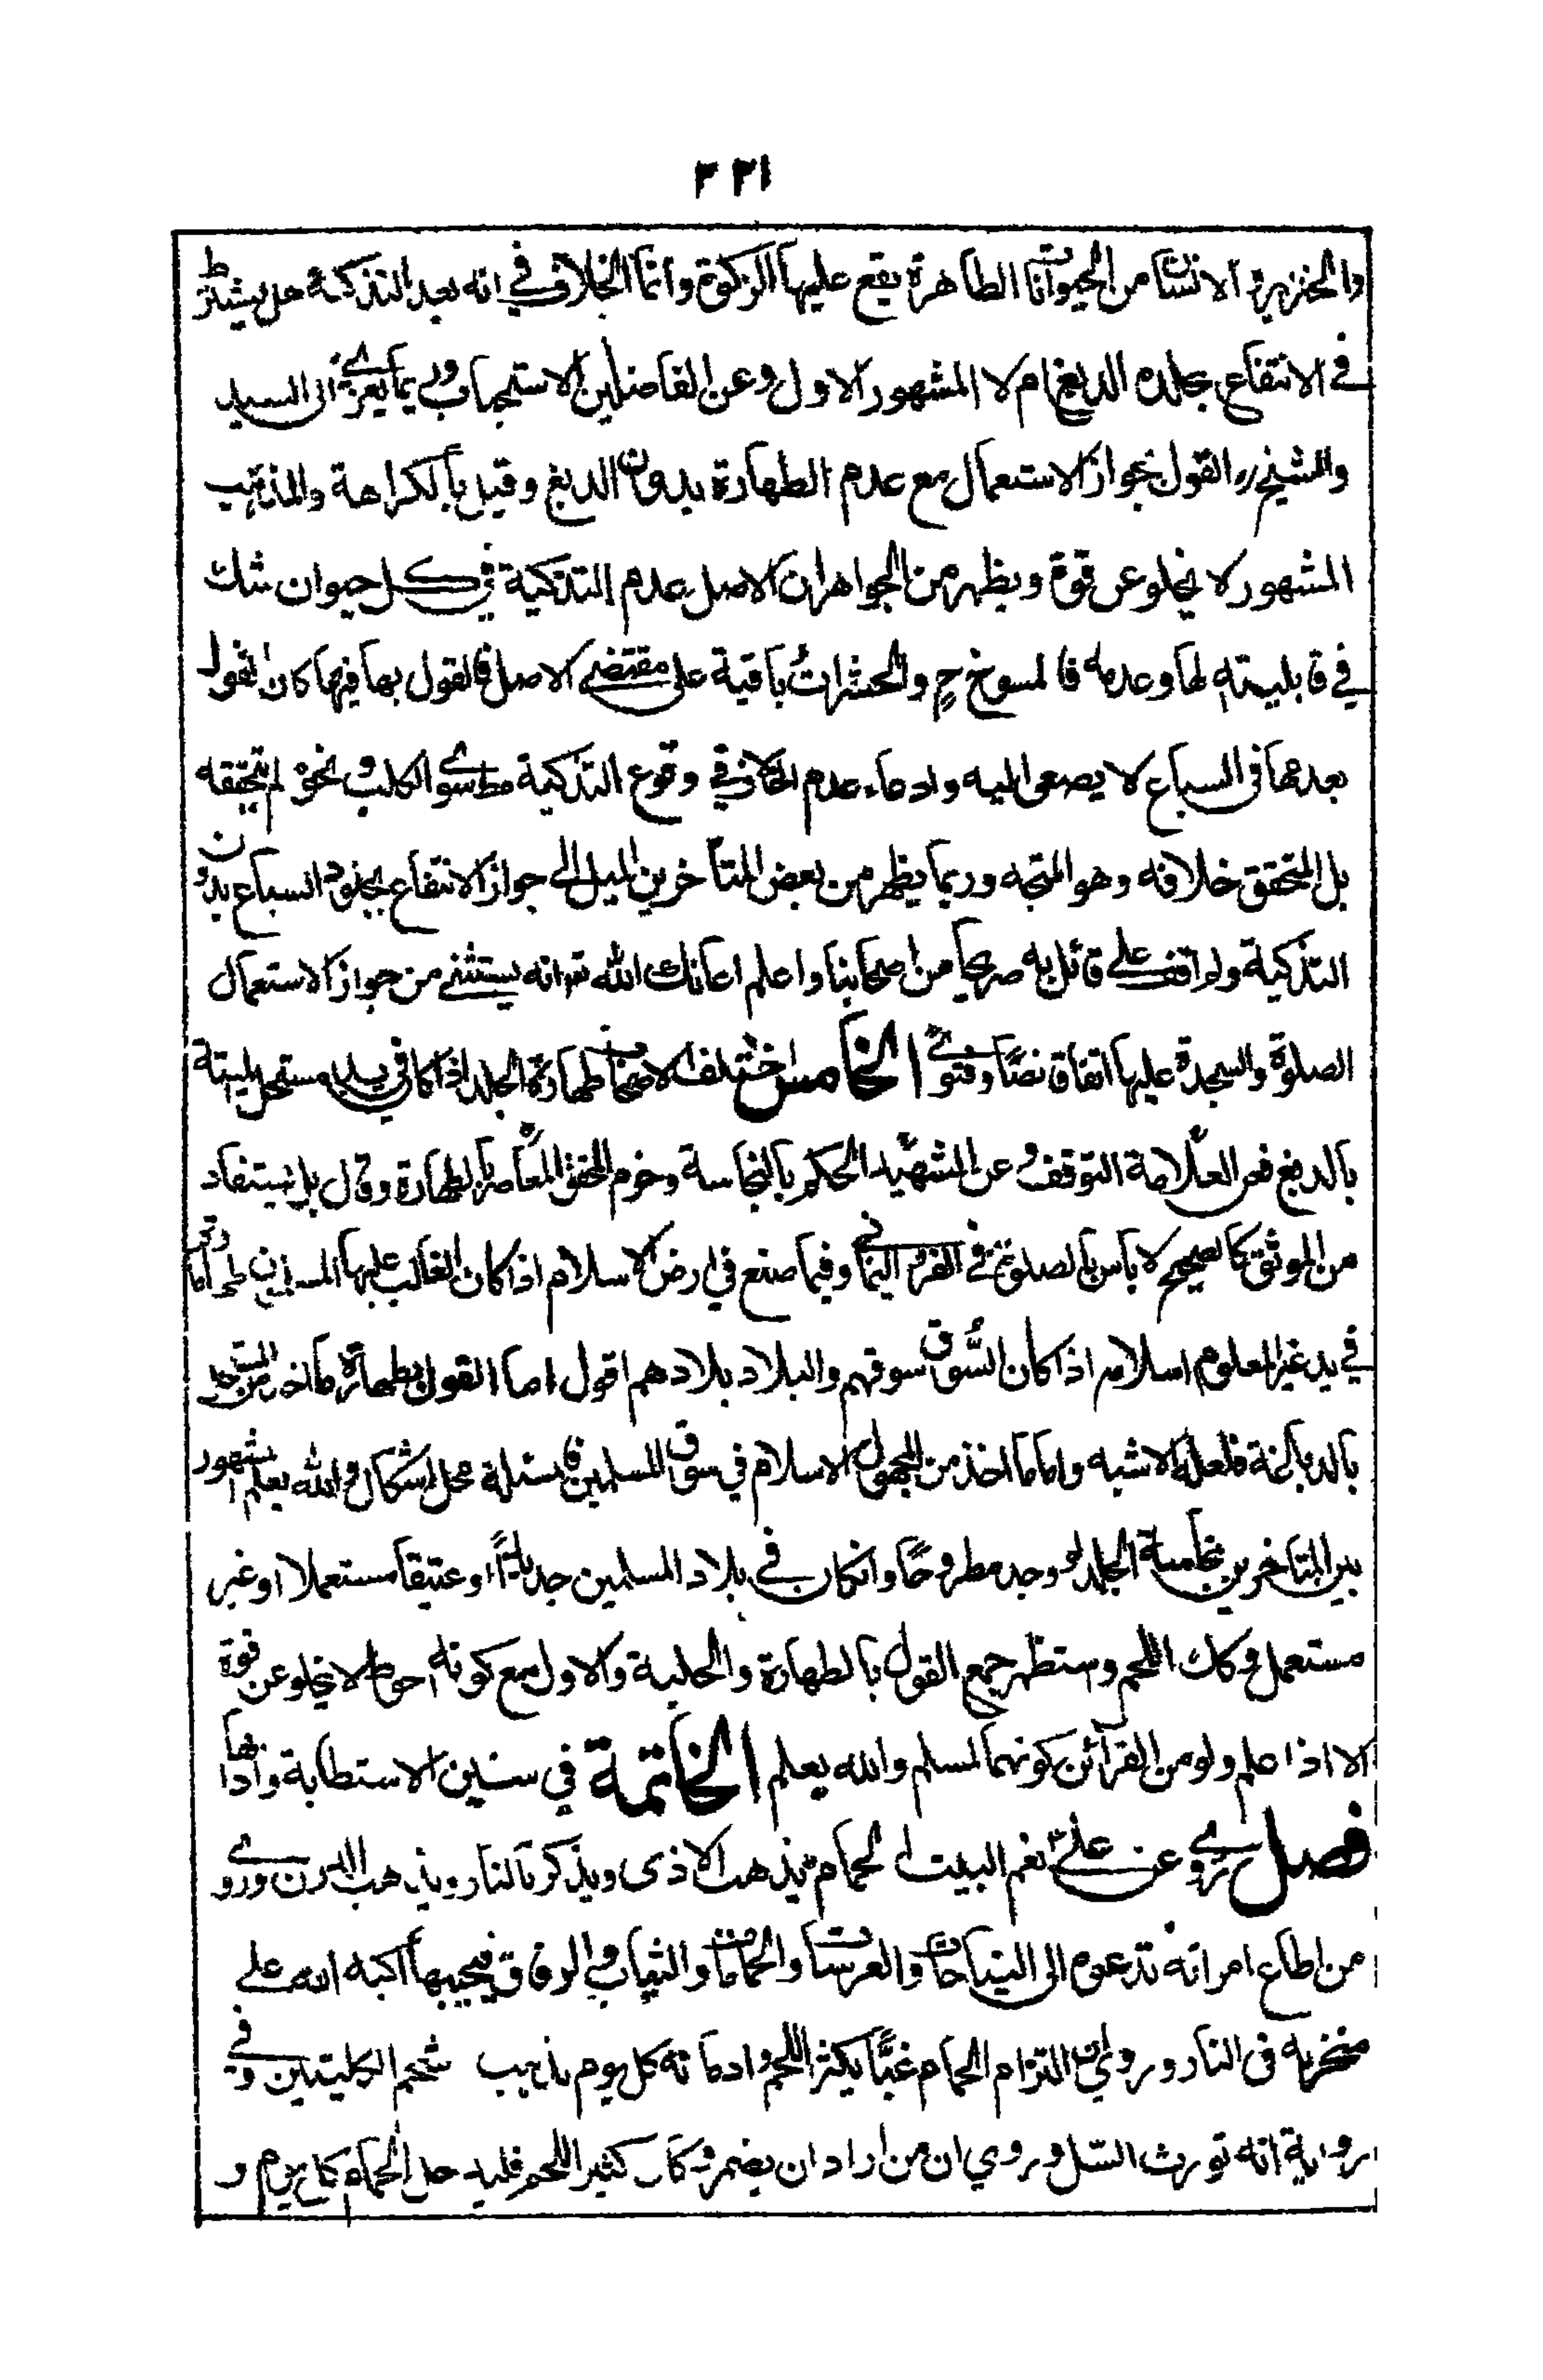 ٣٢١
والخنزير والانسان من الحيوانات الطاهرة يقع عليها الزكوة وانما الخلاف في انه بعد التذكية هل يشترط
في الانتفاع بجلده الدبغ ام لا المشهور الاول وعن الفاضلين الاستحباب وربما يعزى الى السيد
والشيخ ره القول بجواز الاستعمال مع عدم الطهارة بدون الدبغ وقيل بالكراهة والمذهب
المشهور لا يخلو عن قوة ويظهر من الجواهر ان الاصل عدم التذكية في كل حيوان شك
في قابليته لها وعدمه فالمسوخ ح والحشرات باقية على مقتضى الاصل فالقول بها فيهما كالقول
بعدمها في السباع لا يصغى اليه وادعاء عدم الخلاف في وقوع التذكية مما سوى الكلب ونحوه لم نتحققه
بل المتحقق خلافه وهو المتجه وربما يظهر من بعض المتأخرين الميل الى جواز الانتفاع بجلود السباع بدون
التذكية ولم اقف على قائل به صريحا من اصحابنا واعلم اعانك الله تعـ انه يستثنى من جواز الاستعمال
الصلوة والسجدة عليها اتفاق نصًا وفتوى الخامس اختلف الاصحاب طهارة الجلد اذا كان في يد مستحل الميتة
بالدبغ فعن العلّامة التوقف وعن الشهيد الحكم بالنجاسة وجزم المحقق المعاصر بالطهارة وقال بل يستفاد
من الموثق كالصحيح لا بأس بالصلوة في الفرو اليماني وفيما صنع في ارض الاسلام اذا كان الغالب عليها المسلمين
في يد غير المعلوم اسلامه اذا كان السُّوق سوقهم والبلاد بلادهم اقول اما القول بطهارة ما اخذ من المستحل
بالدباغة فلعله الاشبه واما ما اخذ من المجهول الاسلام في سوق المسلمين فالمسئلة محل اشكال والله يعلم المشهور
بين المتاخرين نجاسة الجلد لو وجد مطروحًا وان كان في بلاد المسلمين جديدًا او عتيقا مستعملا او غير
مستعمل وكك اللحم واستظهر جمع القول بالطهارة والحلية والاول مع كونه احوط لا يخلو عن قوة
الا اذا علم ولو من القرآئن كونهما لمسلم والله يعلم الخاتمة في سنين الاستطابة وآدابها
فصل روى عن علىّ نعم البيت الحمام يذهب الاذى ويذكر بالنار ويذهب الدرن وروى
من اطاع امرأته تدعوه الى النياحات والعرسات والحمامات والثياب الرقاق فيجيبها اكبه الله على
منخريه في النار وروى ان التزام الحمام غبًّا يكثر اللحم وادمانه كل يوم يذيب شحم الكليتين وفي
رواية انه تورث السّل وروي ان من اراد ان يضمر وكان كثير اللحم فليدخل الحمام كل يوم و